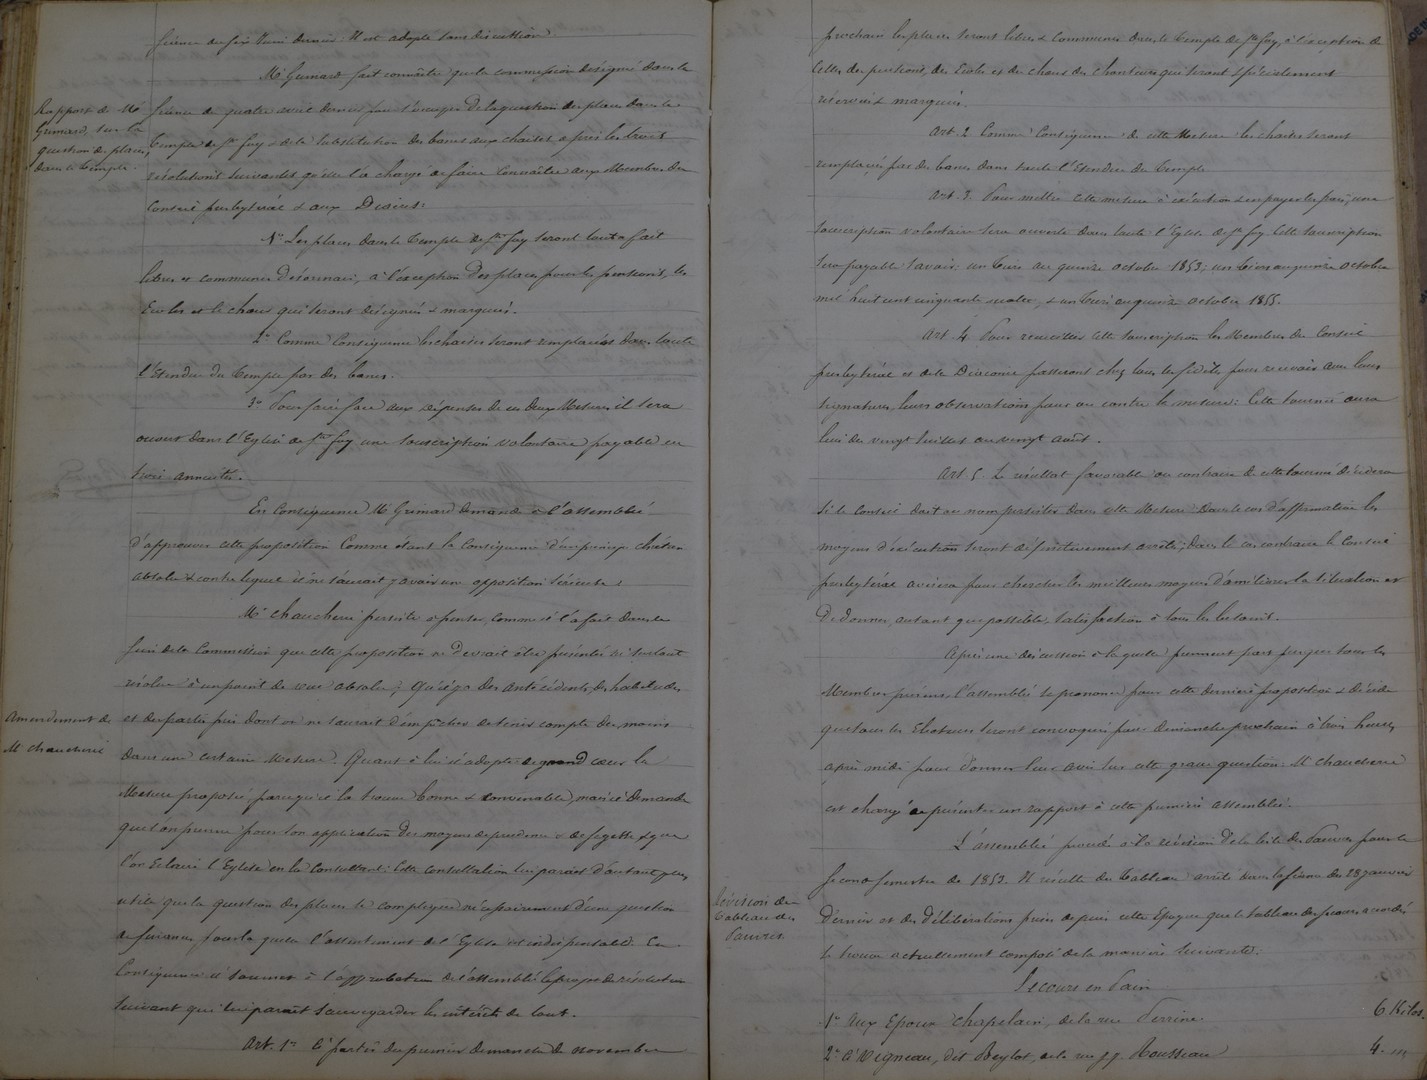 séance du six Juin dernier. Il est adopté sans discussion.
Mr Grimard fait connaître que la commission désignée dans la
Rapport de Mr
Grimard, sur la
question des places
dans le Temple.
séance du quatre avril dernier pour s'occuper de la question des places dans le
Temple de Ste foy & de la substitution des bancs aux chaises a pris les trois
résolutions suivantes qu'elle l'a chargé de faire connaître aux Membres du
Conseil presbytéral & aux Diacres:
1o Les places dans le Temple de Ste foy seront tout à fait
libres et communes désormais, à l'exception des places pour les pensions, les
Ecoles et le chœur qui seront désignées & marquées.
2o Comme Conséquence les chaises seront remplacées dans toute
l'Etendue du Temple par des bancs.
3o Pour faire face aux dépenses de ces deux Mesures il sera
ouvert dans l'Eglise de Ste foy une souscription volontaire payable en
trois annuités.
En Conséquence Mr Grimard demande à l'assemblée
d'approuver cette proposition Comme étant la Conséquence d'un principe chrétien
absolu & contre lequel il ne saurait y avoir une opposition sérieuse:
Mr chaucherie persiste à penser, comme il l'a fait dans le
sein de la Commission que cette proposition ne devrait être présentée ni surtout
résolue à un point de vue absolu; qu'il y a des antécédents, des habitudes
Amendement de
M chaucherie
et des partis pris dont on ne saurait s'empêcher de tenir compte du moins
dans une certaine Mesure. Quant à lui il adopte de grand cœur la
Mesure proposée parce qu'il la trouve bonne & convenable, mais il demande
que l'on prenne pour son application des moyens de prudence & de sagesse & que
l'on Eclaire l'Eglise en la Consultant: Cette consultation lui paraît d'autant plus
utile que la question des places se complique nécessairement d'une question
de finances pour laquelle l'assentiment de l'Eglise est indispensable. En
Conséquence il soumet à l'approbation de l'assemblée le projet de résolution
suivant qui lui paraît sauvegarder les intérêts de tous.
Art. 1er à partir du premier dimanche de novembre
prochain les places seront libres & communes dans le Temple de Ste foy, à l'exception de
celles des pensions, des Ecoles et du chœur des chanteurs qui seront spécialement
réservées & marquées.
Art. 2. Comme Conséquence de cette Mesure les chaises seront
remplacées par des bancs dans toute l'Etendue du Temple
Art. 3. Pour mettre cette mesure à exécution & en payer les frais, une
souscription volontaire sera ouverte dans toute l'Eglise de Ste foy. Cette souscription
sera payable savoir; un tiers au quinze octobre 1853; un tiers au quinze octobre
mil huit cent cinquante quatre, & un tiers au quinze octobre 1855.
Art. 4. Pour recueillir cette souscription les Membres du Conseil
presbytéral et de la Diaconie passeront chez tous les fidèles pour recevoir avec leurs
signatures, leurs observations pour ou contre la mesure: Cette tournée aura
lieu du vingt Juillet au vingt août.
Art. 5. Le résultat favorable ou contraire de cette tournée décidera
si le Conseil doit ou non persister dans cette Mesure. Dans le cas d'affirmation les
moyens d'exécution seront définitivement arrêtés; dans le cas contraire le Conseil
presbytéral avisera pour chercher les meilleurs moyens d'améliorer la situation et
de donner, autant que possible, satisfaction à tous les besoins.
Après une discussion à laquelle prennent part presque tous les
Membres présents, l'assemblée se prononce pour cette dernière proposition & décide
que tous les Electeurs seront convoqués pour dimanche prochain à trois heures
après midi pour donner leur avis sur cette grave question: Mr Chaucherie
est chargé de présenter un rapport à cette première assemblée.
L'assemblée procède à la révision de la liste des Pauvres pour le
Révision du
Tableau des
Pauvres.
second semestre de 1853. Il résulte du Tableau arrêté dans la séance du 28 janvier
dernier et des délibérations prises depuis cette Epoque que le tableau des secours accordés
se trouve actuellement composé de la manière suivante.
Secours en Pain
1o Aux Epoux Chapelain, de la rue Perrine. 6 Kilos.
2o à Vigneau, dit Beylot, de la rue JJ. Rousseau 4. "